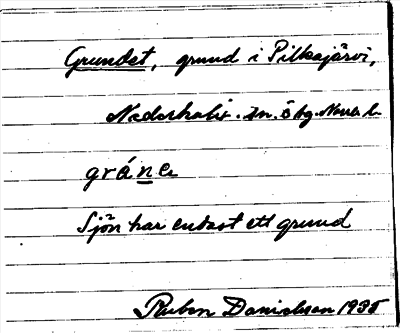 Grundet, grund i Pilkajärvi,
Nederkalix. sn. ö hg. Norrb
gráne
Sjön har endast ett grund
Ruben Danielsson 1935